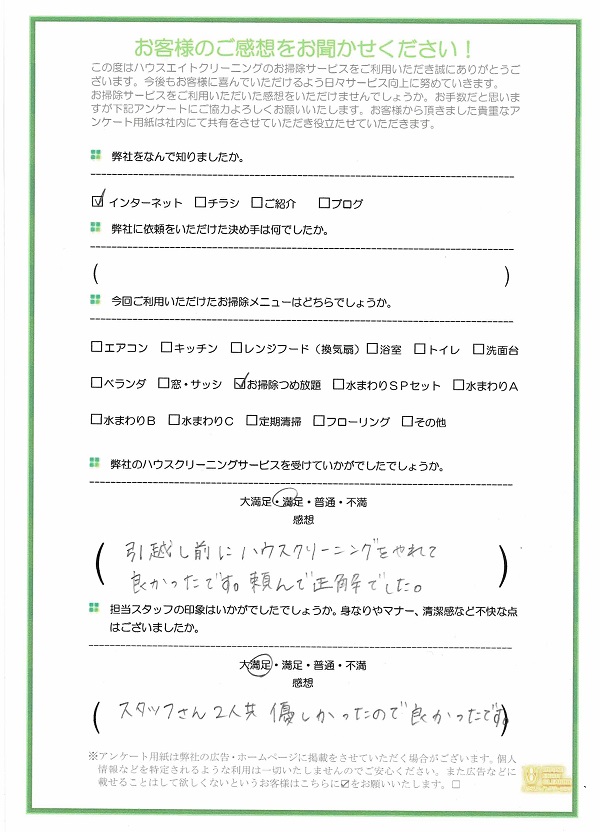 お客様のご感想をお聞かせください！
この度はハウスエイトクリーニングのお掃除サービスをご利用いただき誠にありがとうご
ざいます。今後もお客様に喜んでいただけるよう日々サービス向上に努めていきます。
お掃除サービスをご利用いただいた感想をいただけませんでしょうか。お手数だと思いま
すが下記アンケートにご協力よろしくお願いいたします。お客様から頂きました貴重なア
ンケート用紙は社内にて共有をさせていただき役立たせていただきます。
弊社をなんで知りましたか。
☑インターネット □チラシ □ご紹介 □ブログ
弊社に依頼をいただけた決め手は何でしたか。
( )
今回ご利用いただけたお掃除メニューはどちらでしょうか。
□エアコン □キッチン □レンジフード（換気扇）□浴室 □トイレ □洗面台
□ベランダ □窓・サッシ ☑お掃除つめ放題 □水まわりＳＰセット □水まわりＡ
□水まわりＢ □水まわりＣ □定期清掃 □フローリング □その他
弊社のハウスクリーニングサービスを受けていかがでしたでしょうか。
大満足・満足・普通・不満
感想
( 引越し前にハウスクリーニングをやれて
良かったです。頼んで正解でした。 )
担当スタッフの印象はいかがでしたでしょうか。身なりやマナー、清潔感など不快な点
はございましたか。
大満足・満足・普通・不満
感想
( スタッフさん2人共 優しかったので良かったです。)
※アンケート用紙は弊社の広告・ホームページに掲載をさせていただく場合がございます。個人
情報などを特定されるような利用は一切いたしませんのでご安心ください。また広告などに
載せることはして欲しくないというお客様はこちらに☑をお願いいたします。□